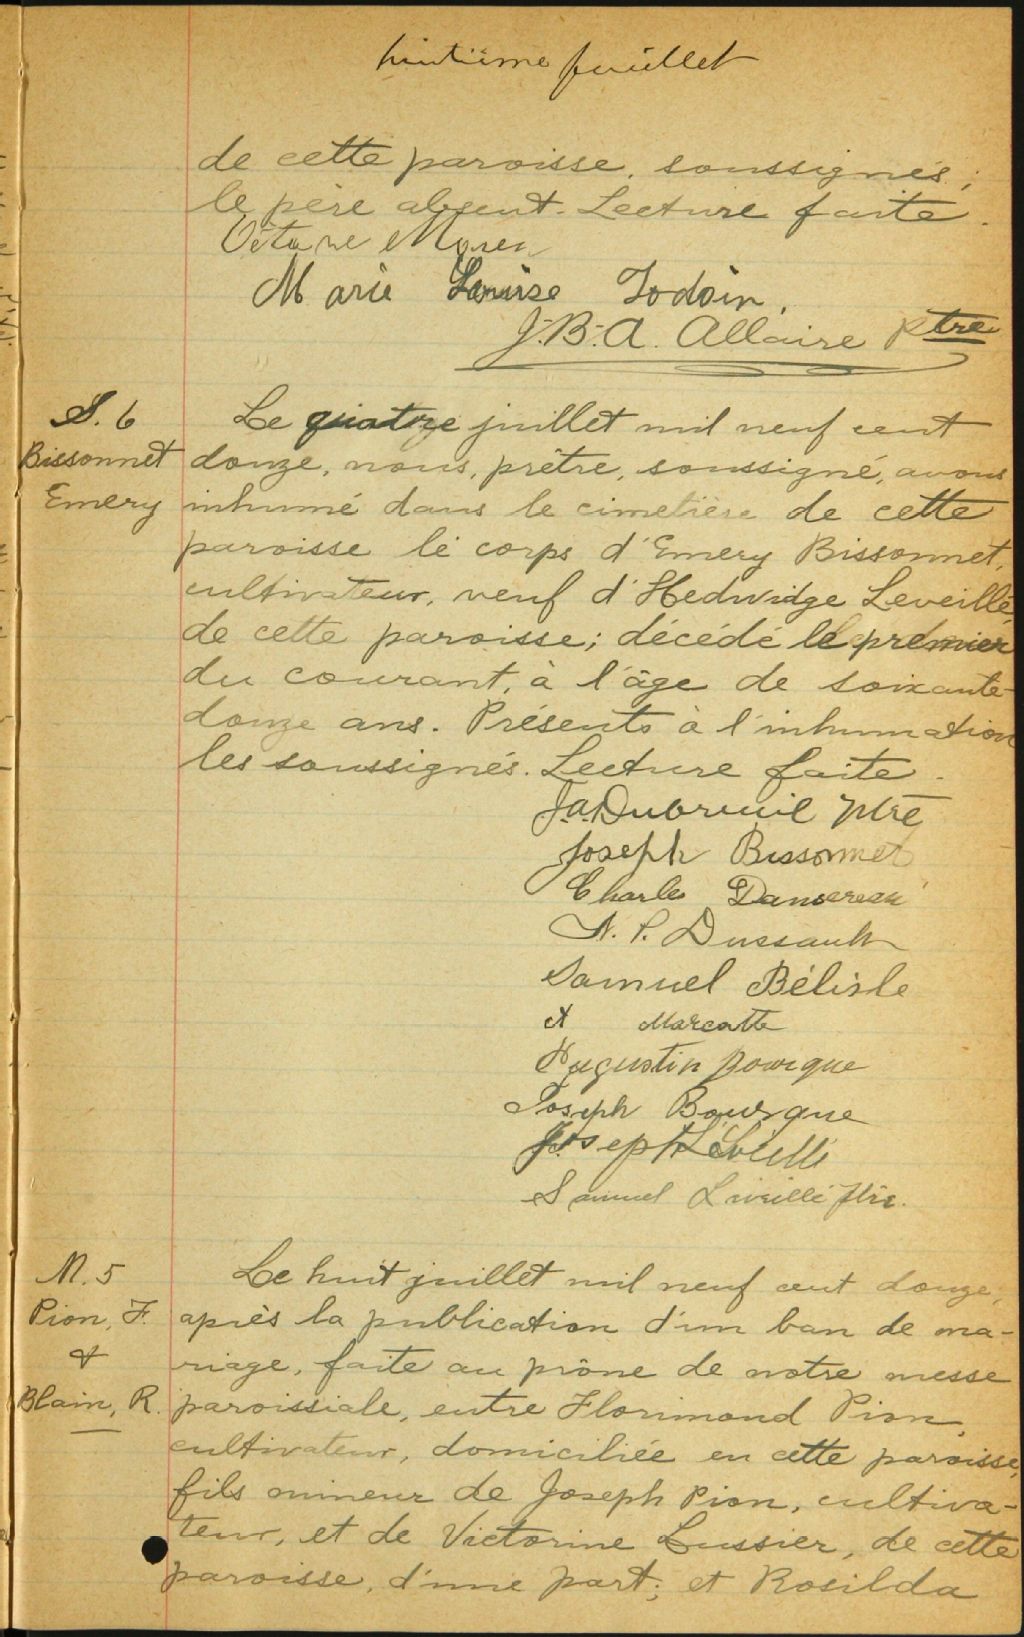 huitième feuillet
de cette paroisse, soussignés;
le père absent. Lecture faite.
Marie Louise Jodoin.
J.-B.-A. Allaire ptre
S. 6
Bissonnet
Emery
Le quatre juillet mil neuf cent
douze, nous, prêtre, soussigné, avons
inhumé dans le cimetière de cette
paroisse le corps d'Emery Bissonnet,
cultivateur, veuf d'Hedwidge Leveillé,
de cette paroisse; décédé le premier
du courant, à l'âge de soixante-
douze ans. Présents à l'inhumation
les soussignés. Lecture faite.
J.A. Dubreuil ptre
Joseph Bissonnet
Charles Dansereau
N. P. Dussault
Samuel Bélisle
A Marcotte
Augustin Bourque
Joseph Bourque
Joseph Léveillé
Samuel Léveillé fils.
M. 5
Pion, F.
&
Blain, R.
Le huit juillet mil neuf cent douze,
après la publication d'un ban de ma-
riage, faite au prône de notre messe
paroissiale, entre Florimond Pion,
cultivateur, domiciliée en cette paroisse,
fils mineur de Joseph Pion, cultiva-
teur, et de Victorine Lussier, de cette
paroisse, d'une part; et Rosilda